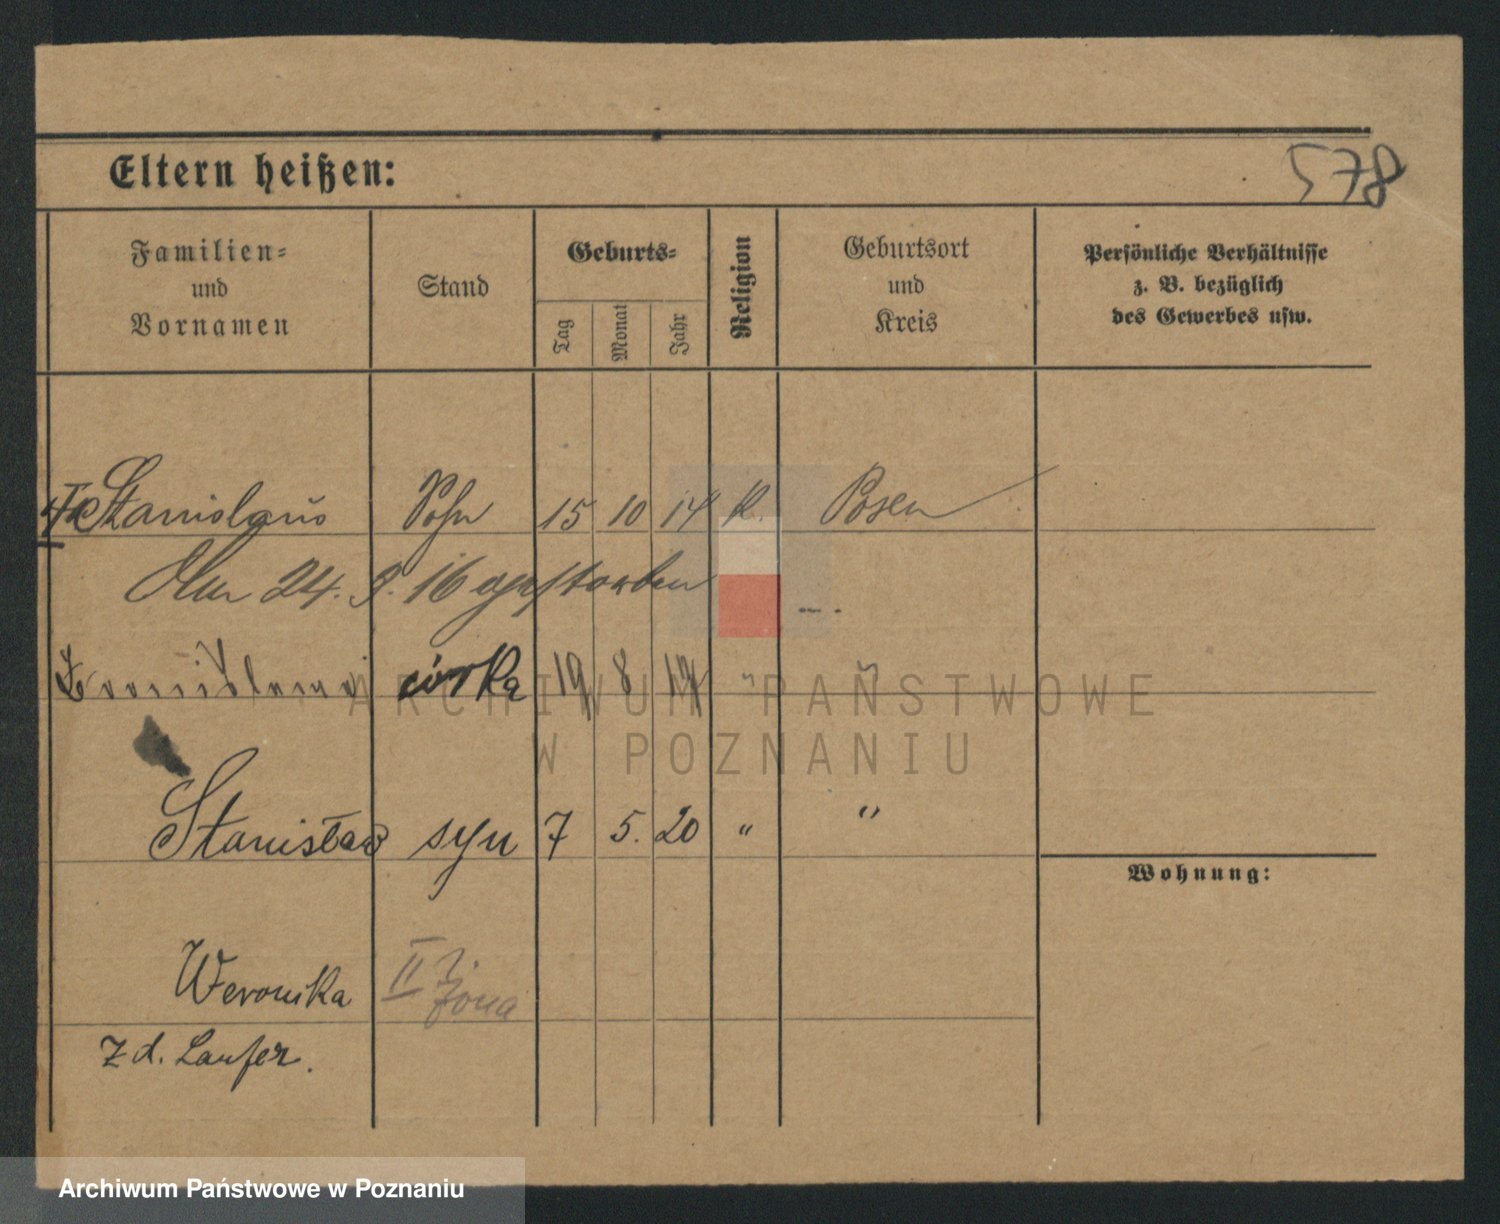 Eltern heißen:
578
Familien=
und
Vornamen
Stand
Geburts=
Tag
Monat
Jahr
Religion
Geburtsort
und
Kreis
Persönliche Verhältnisse
z. B. bezüglich
des Gewerbes usw.
Stanislaus Sohn 15 10 14 K. Posen
Am 24. 9. 16 gestorben
córka 19 8 17 " "
Stanisław syn 7 5. 20 " "
Wohnung:
Weronika II żona
z d. Laufer.
ARCHIWUM PAŃSTWOWE
W POZNANIU
Archiwum Państwowe w Poznaniu